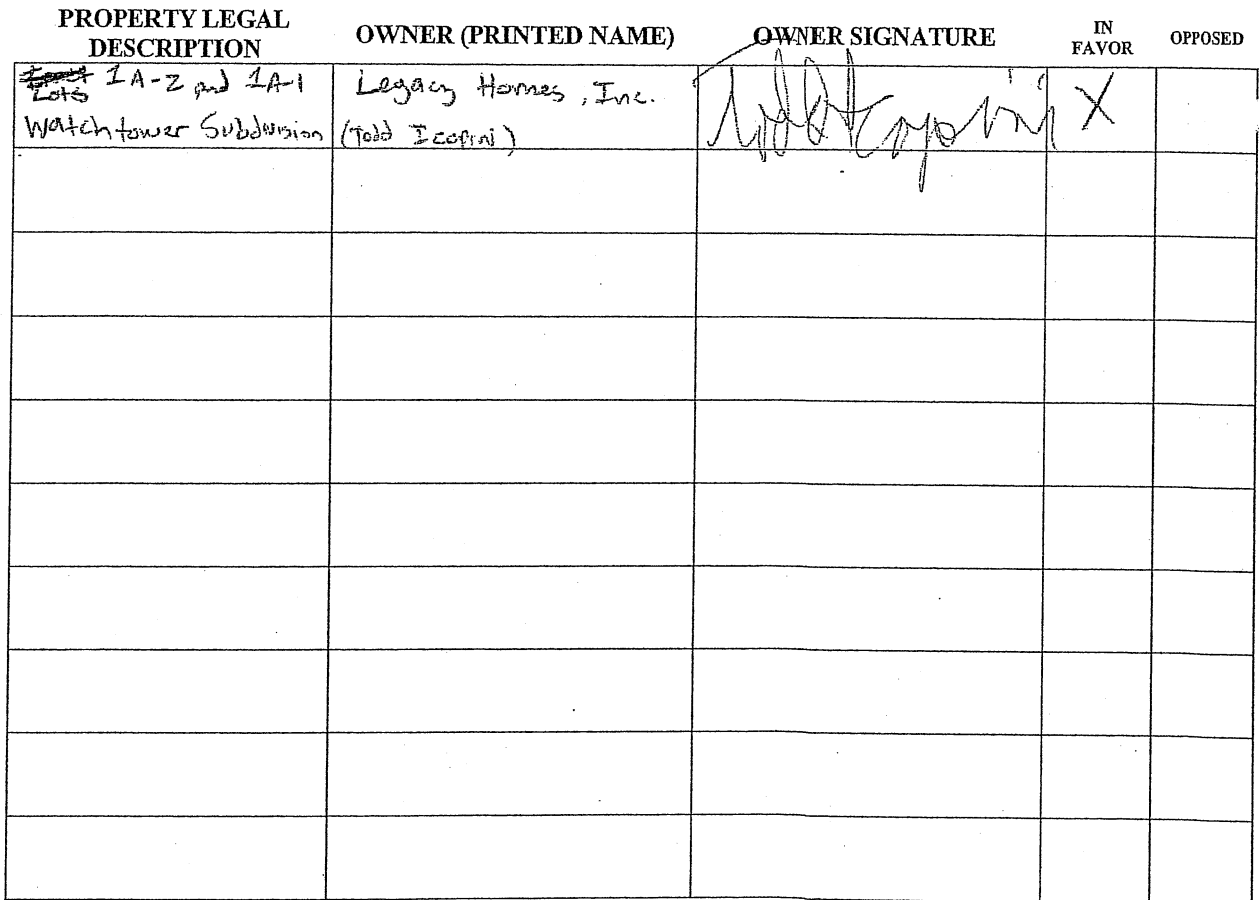 PROPERTY LEGAL DESCRIPTION
OWNER (PRINTED NAME)
OWNER SIGNATURE
IN FAVOR
OPPOSED
Lots 1A-2 and 1A-1
Watchtower Subdivision
Legacy Homes, Inc.
(Todd Icopini)
X